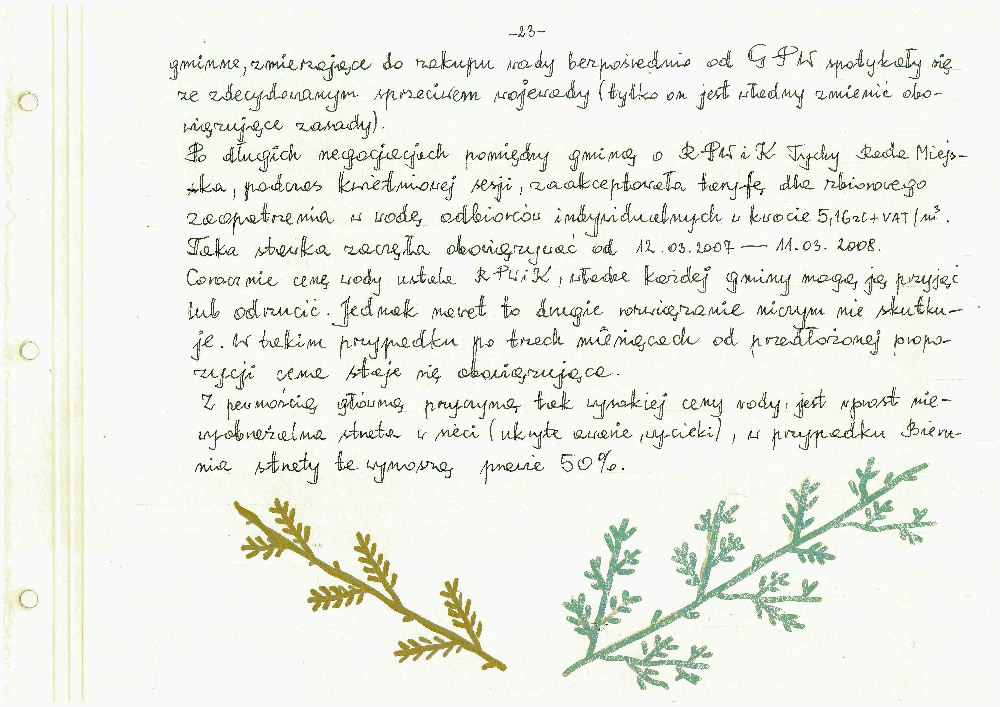 -23-
gminne, zmierzające do zakupu wody bezpośrednio od GPW spotykały się
ze zdecydowanym sprzeciwem wojewody (tylko on jest władny zmienić obo-
wiązujące zasady).
Po długich negocjacjach pomiędzy gminą a RPWiK Tychy Rada Miejs-
ka, podczas kwietniowej sesji, zaakceptowała taryfę dla zbiorowego
zaopatrzenia w wodę odbiorców indywidualnych w kwocie 5,16zł+VAT/m³.
Taka stawka zaczęła obowiązywać od 12.03.2007 — 11.03.2008.
Corocznie cenę wody ustala RPWiK, władze każdej gminy mogą ją przyjąć
lub odrzucić. Jednak nawet to drugie rozwiązanie niczym nie skutku-
je. W takim przypadku po trzech miesiącach od przedłożonej propo-
zycji cena staje się obowiązująca.
Z pewnością główną przyczyną tak wysokiej ceny wody, jest wprost nie-
wyobrażalna strata w sieci (ukryte awarie, wycieki), w przypadku Bieru-
nia straty te wynoszą prawie 50%.